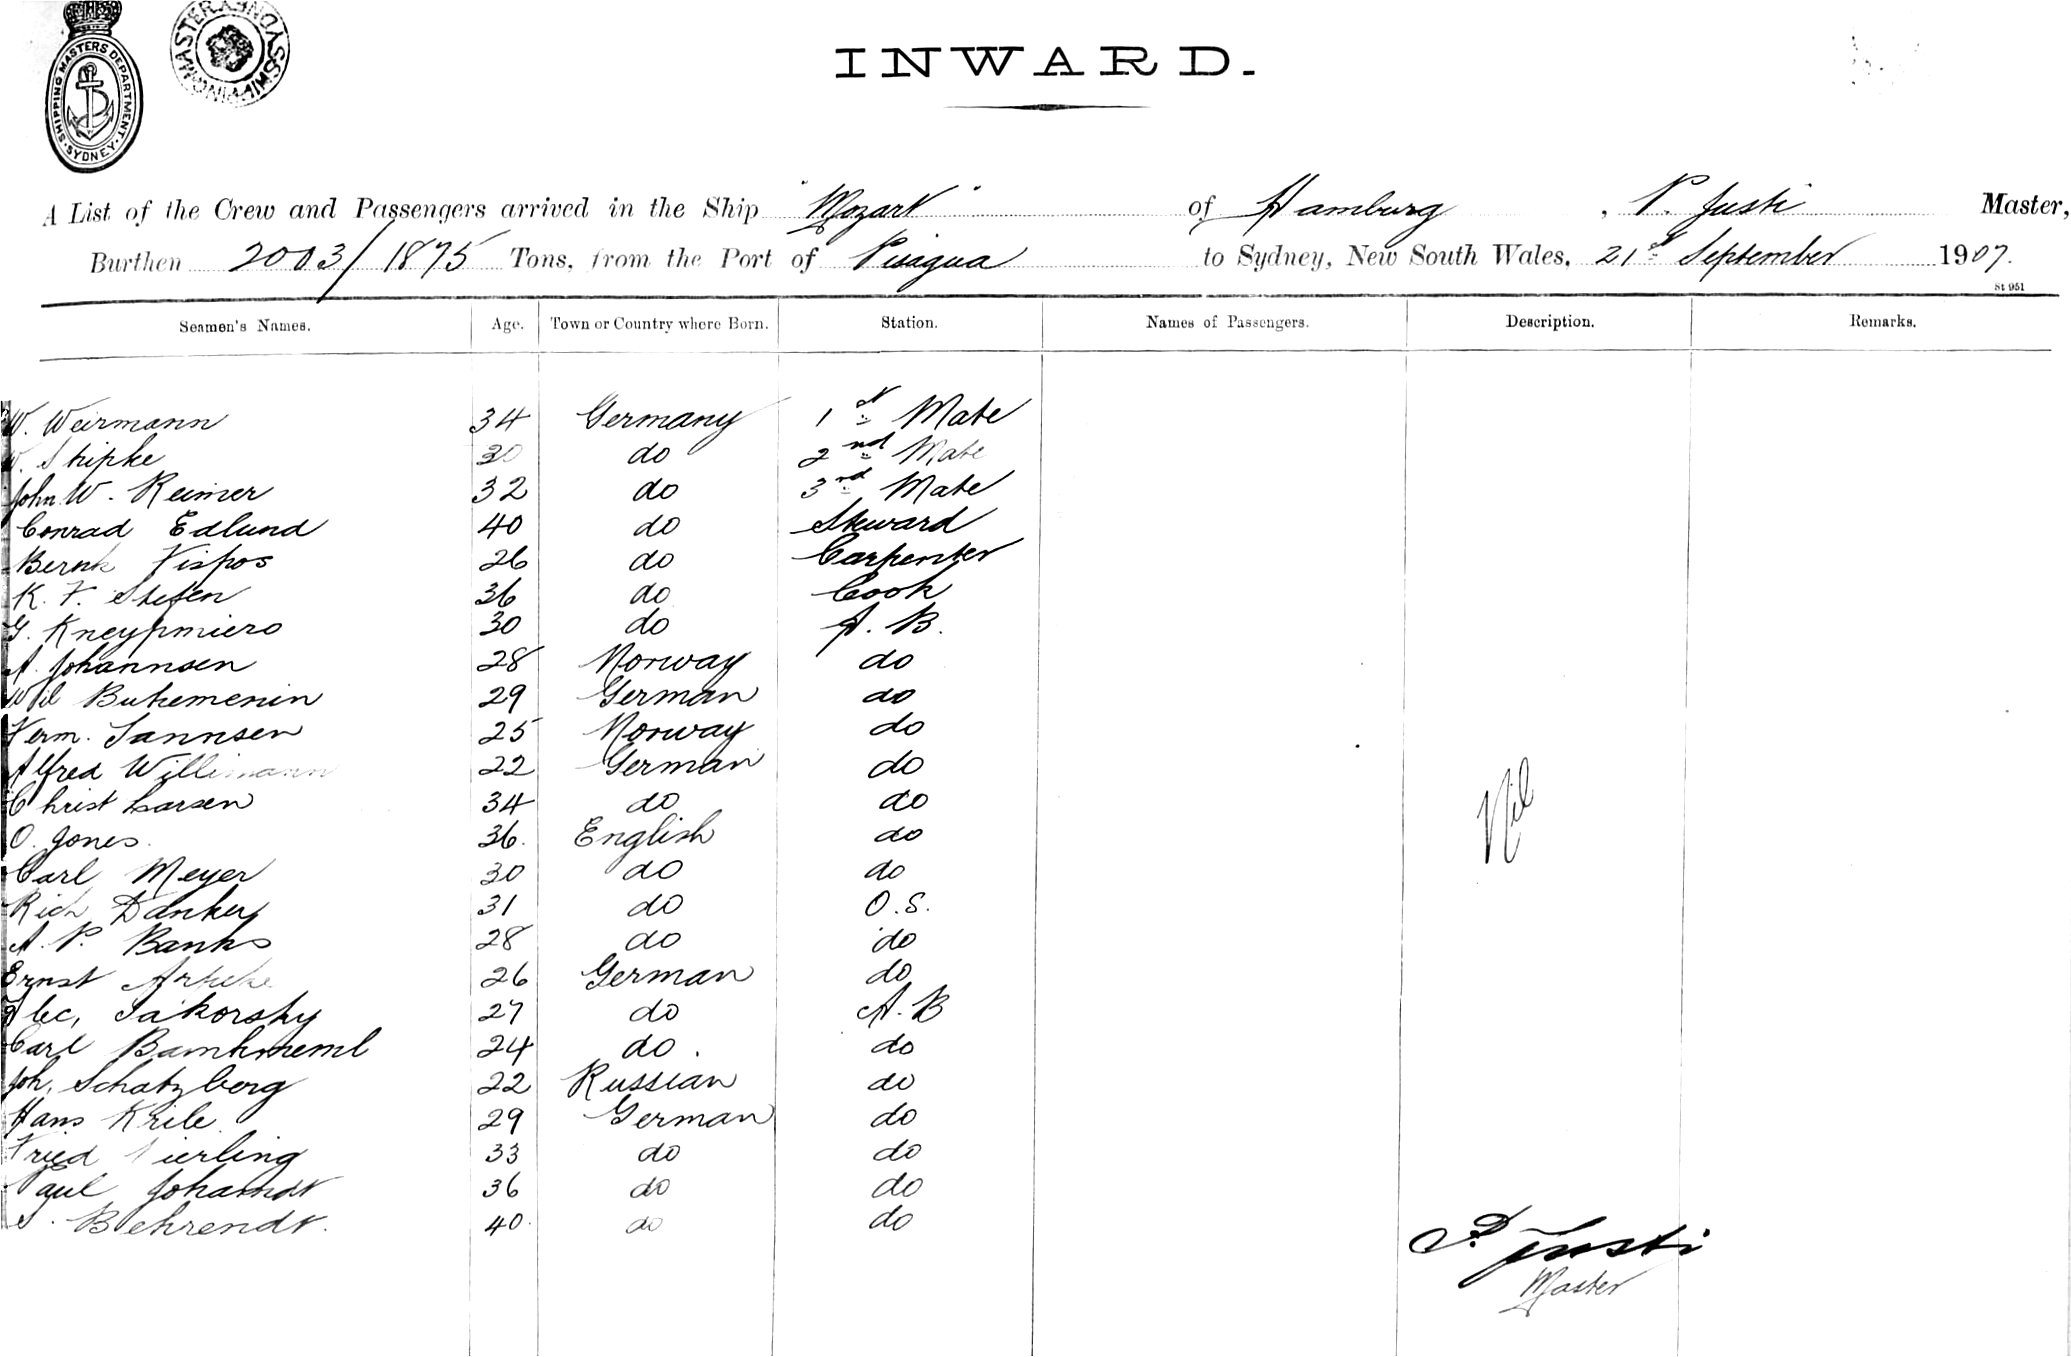 SHIPPING MASTERS DEPARTMENT · SYDNEY ·
INWARD.
A List of the Crew and Passengers arrived in the Ship "Mozart" of Hamburg, P. Justi Master,
Burthen 2003/1875 Tons, from the Port of Pisagua to Sydney, New South Wales, 21st September 1907.
St 951
Seamen's Names. Age. Town or Country where Born. Station. Names of Passengers. Description. Remarks.
W. Weirmann 34 Germany 1st Mate
Shipke 30 do 2nd Mate
John W. Reimer 32 do 3rd Mate
Conrad Edlund 40 do Steward
Bernh 26 do Carpenter
K. F. Stefen 36 do Cook
G. Kneypmiero 30 do A. B.
A. Johannsen 28 Norway do
Wil Buhemenin 29 German do
Herm. Jannsen 25 Norway do
Alfred Willimann 22 German do
Christ Larsen 34 do do
O. Jones 36. English do
Nil
Carl Meyer 30 do do
Rich Danker 31 do O.S.
A. P. Banks 28 do do
Ernst 26 German do
Alec, Jakorsky 27 do A. B
Carl 24 do do
Joh. Schatzberg 22 Russian do
Hans Krile 29 German do
Fried ierling 33 do do
Paul Johamdt 36 do do
Behrendt. 40 do do
P. Justi
Master